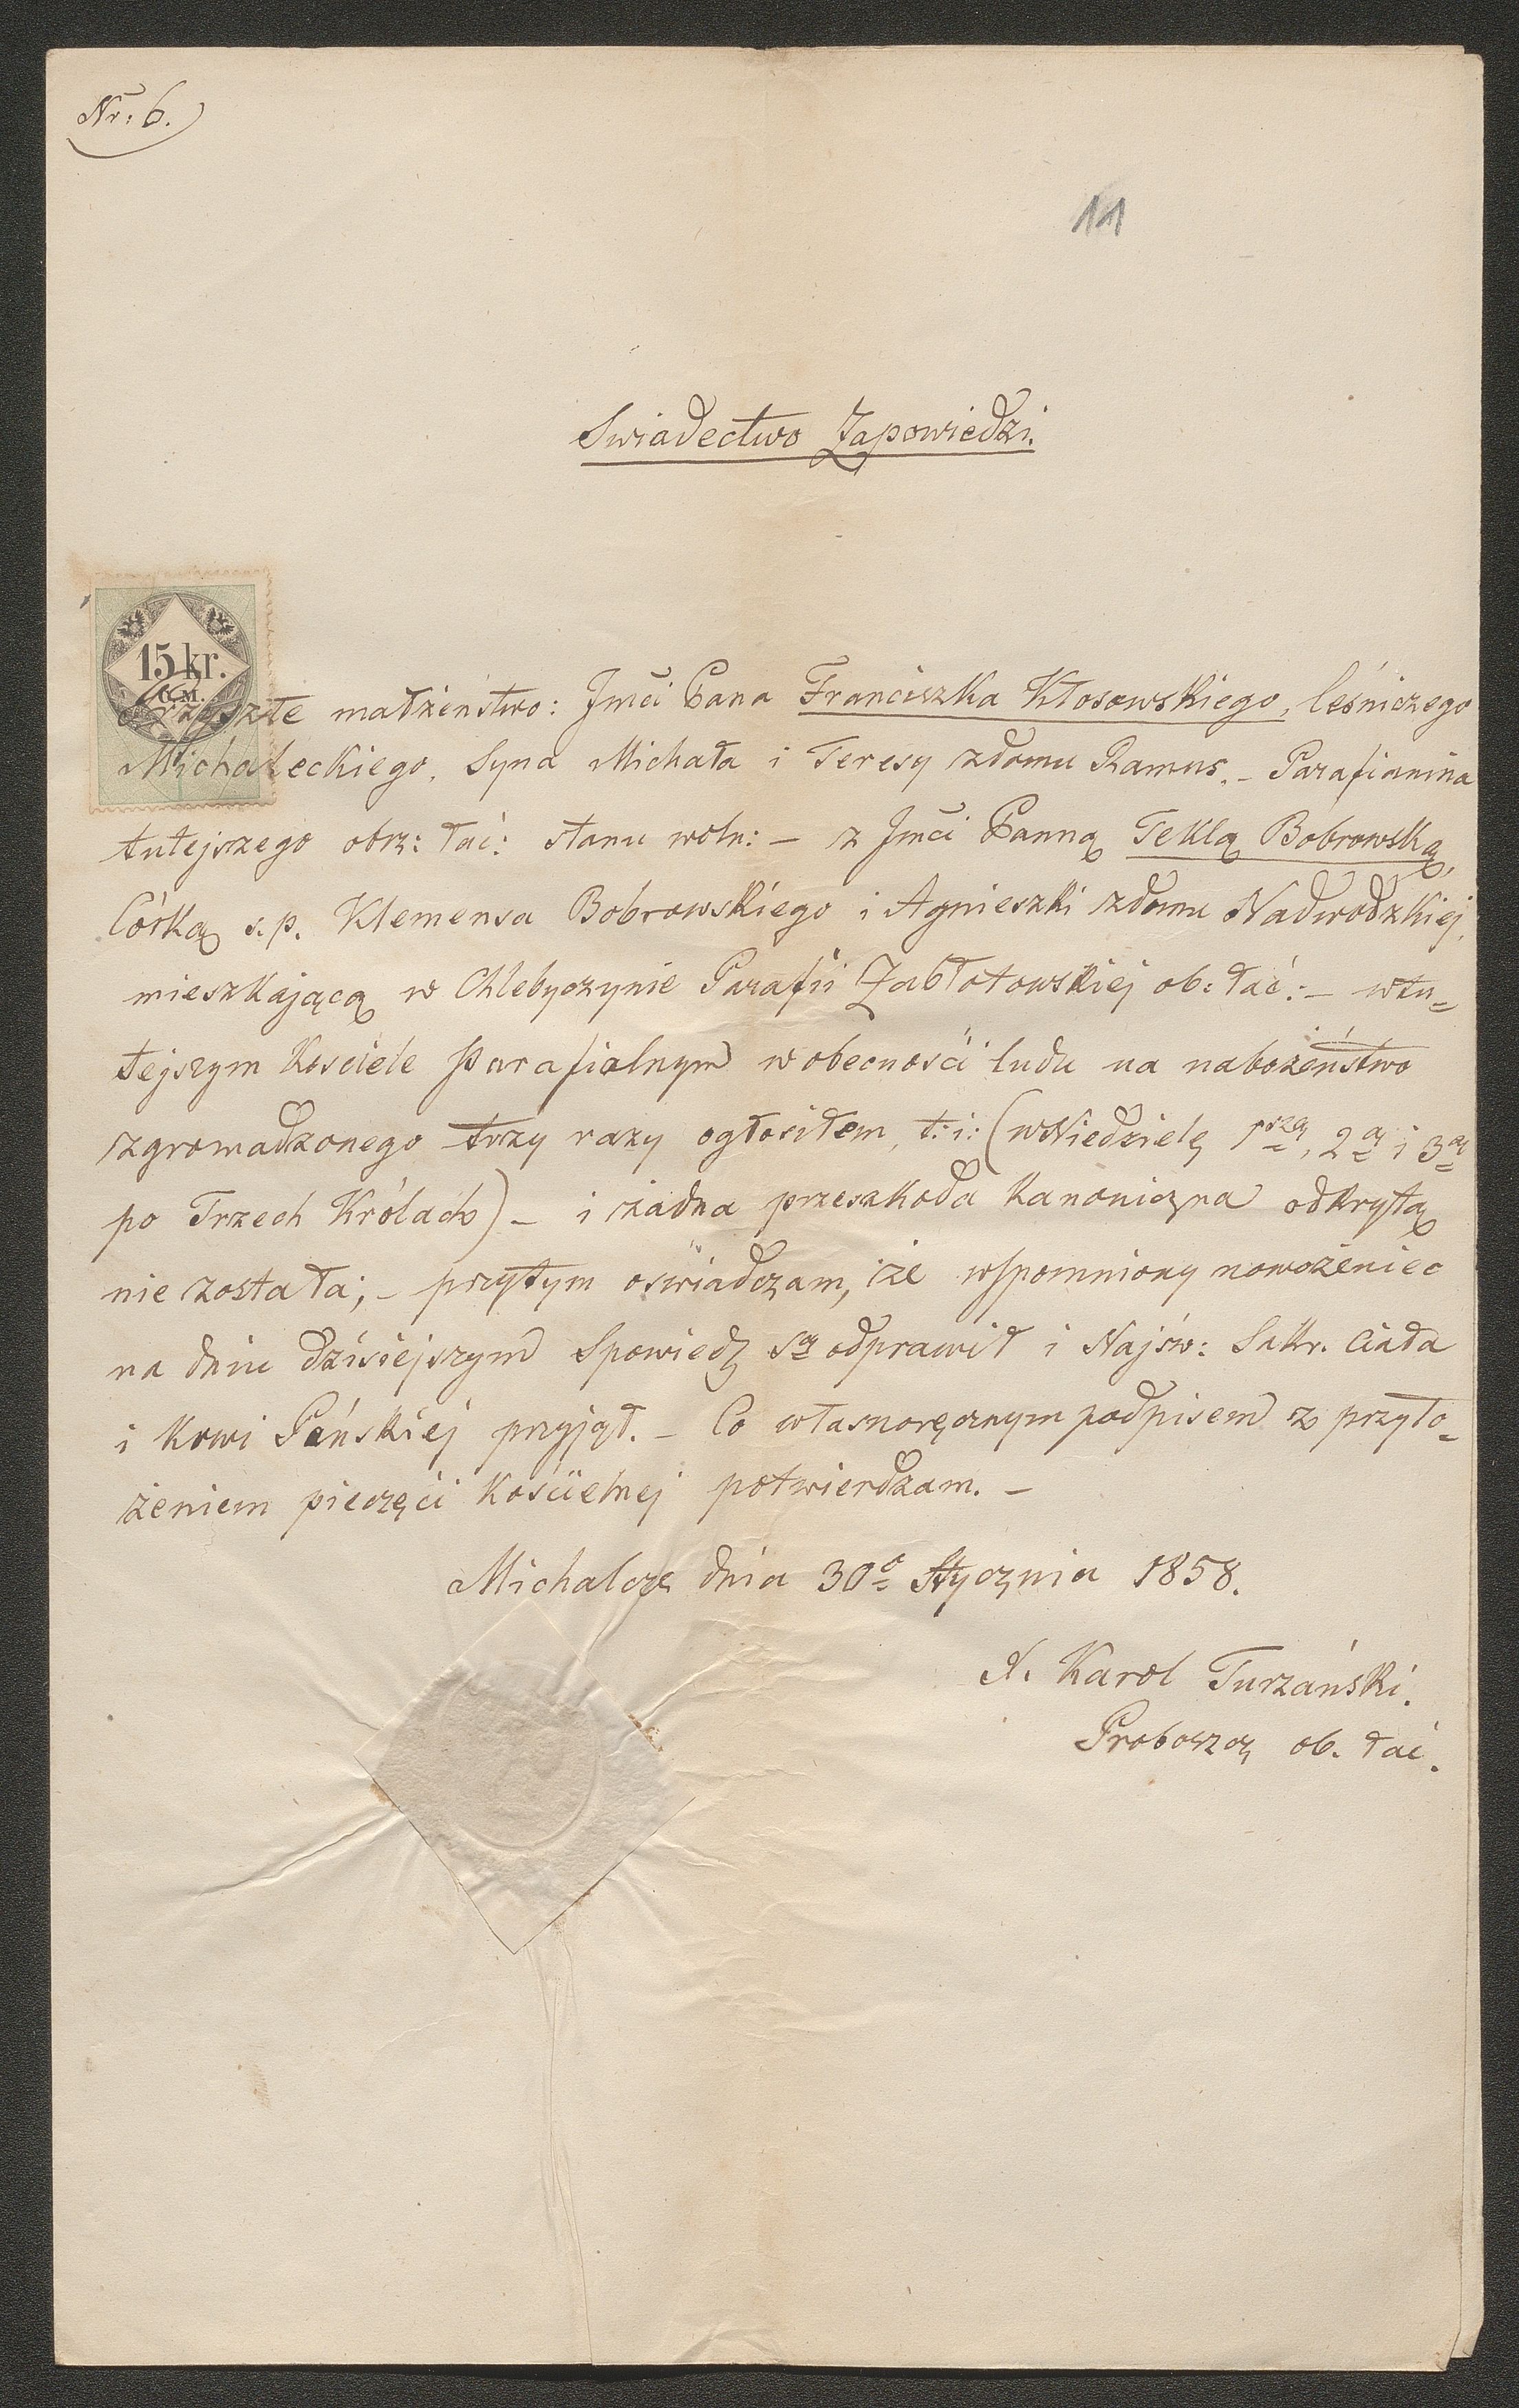 Nr: 6.
11
Swiadectwo Zapowiedzi.
15 kr.
C.M.
Przyszłe małżeństwo: Jmći Pana Franciszka Kłosowskiego, leśniczego
Michałeckiego, Syna Michała i Teresy zdomu Ramus. – Parafianina
tutejszego obrz: łać: stanu woln: – z Jmći Panną Teklą Bobrowską,
Córką s. p. Klemensa Bobrowskiego i Agnieszki zdomu Nadwodzkiej,
mieszkającą w Chlebyczynie Parafii Zabłotowskiej ob: łać: – wtu=
tejszym Kosciele Parafialnym w obecności ludu na nabożeństwo
zgromadzonego trzy razy ogłosiłem, t: i: (wNiedzielę 1szą, 2ą i 3ą
po Trzech Królach) – i żadna przeszkoda Kanoniczna odkrytą
nie została; – przytym oświadczam, że wspomniony nowożeniec
na dniu dzisiejszym Spowiedź Są odprawił i Najśw: Sakr. Ciała
i Krwi Pańskiej przyjął. – Co własnoręcznym podpisem z przyło=
żeniem pieczęci Kościelnej potwierdzam. –
Michalcze dnia 30o Stycznia 1858.
X. Karol Turzański.
Proboszcz ob. łać.